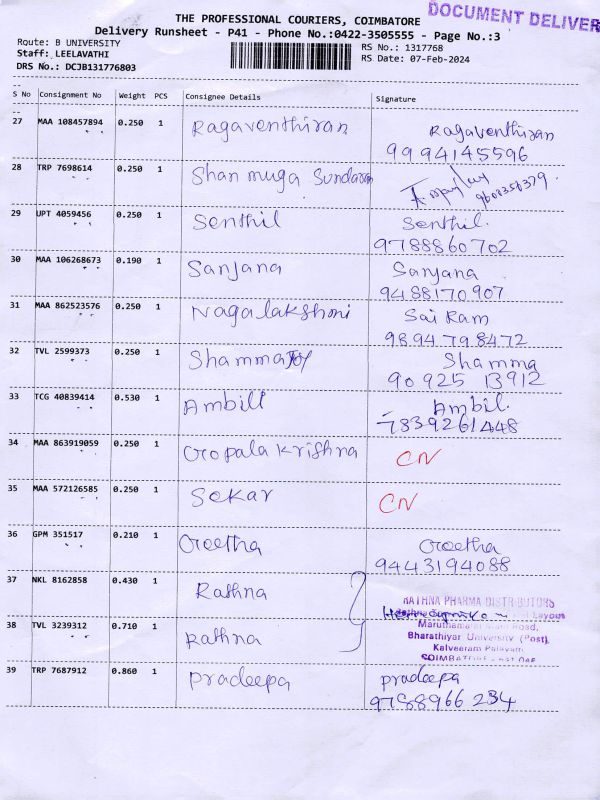 THE PROFESSIONAL COURIERS, COIMBATORE
DOCUMENT DELIVER
Delivery Runsheet - P41 - Phone No.:0422-3505555 - Page No.:3
Route: B UNIVERSITY
RS No.: 1317768
Staff: LEELAVATHI
RS Date: 07-Feb-2024
DRS No.: DCJB131776803
S No Consignment No Weight PCS Consignee Details Signature
27 MAA 108457894 0.250 1 Ragaventhiran Ragaventhiran
9994145596
28 TRP 7698614 0.250 1 Shanmuga Sundaram
29 UPT 4059456 0.250 1 Senthil Senthil.
9788860702
30 MAA 106268673 0.190 1 Sanjana Sanjana
9488170907
31 MAA 862523576 0.250 1 Nagalakshmi Sai Ram
9894798472
32 TVL 2599373 0.250 1 Shamma Shamma
90925 13912
33 TCG 40839414 0.530 1 Ambill Ambil.
7839261448
34 MAA 863919059 0.250 1 Gopala Krishna CN
35 MAA 572126585 0.250 1 Sekar CN
36 GPM 351517 0.210 1 Geetha Geetha
9443194088
37 NKL 8162858 0.430 1 Rathna RATHNA PHARMA DISTRIBUTORS
Layout
38 TVL 3239312 0.710 1 Rathna Road,
Bharathiyar University (Post),
Kalveeram Palayam
COIMBATORE
39 TRP 7687912 0.860 1 Pradeepa pradeepa
9788966 234